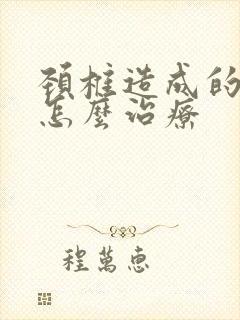 頚椎造成的
怎麼治療
程萬惠